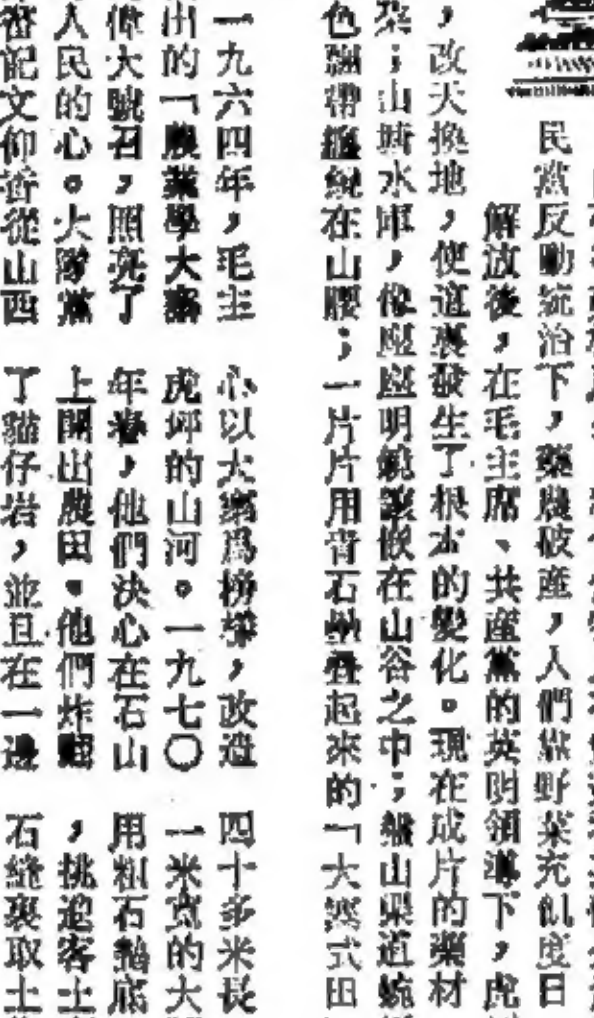 民黨反動統治下，藥農破產，人們靠野菜充飢度日
解放後，在毛主席、共產黨的英明領導下，虎
，改天換地，使這裏發生了根本的變化。現在成片的藥材
；山塘水庫，像座座明鏡鑲嵌在山谷之中；盤山渠道蜿
色綢帶纏繞在山腰；一片片用青石壘疊起來的「大寨式田
一九六四年，毛主
出的「農業學大寨
偉大號召，照亮了
人民的心。大隊黨
書記文仰香從山西
心以大寨爲榜樣，改造
虎坪的山河。一九七〇
年春，他們決心在石山
上開出農田。他們炸
了貓仔岩，並且在一邊
四十多米長
一米寬的大
用粗石鋪底
，挑過客土
石縫裏取土